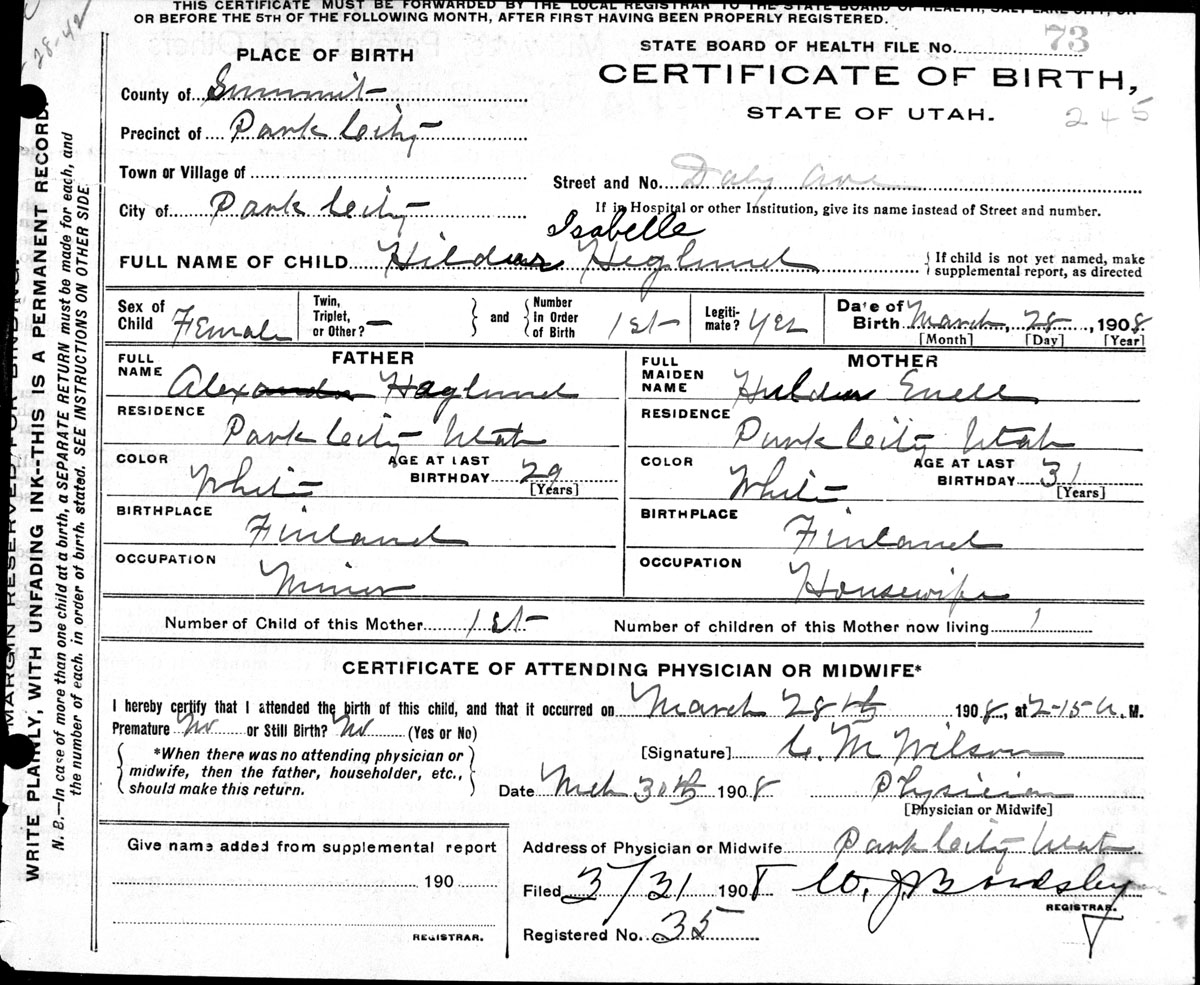 THIS CERTIFICATE MUST BE FORWARDED BY THE LOCAL REGISTRAR TO THE STATE BOARD OF HEALTH, SALT LAKE CITY, ON
OR BEFORE THE 5TH OF THE FOLLOWING MONTH, AFTER FIRST HAVING BEEN PROPERLY REGISTERED.
28-42
STATE BOARD OF HEALTH FILE No. 73
CERTIFICATE OF BIRTH,
STATE OF UTAH.
245
PLACE OF BIRTH
County of Summit
Precinct of Park City
Town or Village of
City of Park City
Street and No. Daly Ave
If in Hospital or other Institution, give its name instead of Street and number.
Isabelle
FULL NAME OF CHILD Hildur Heglund
If child is not yet named, make
supplemental report, as directed
Sex of Child Female
Twin, Triplet, or Other? —
and
Number In Order of Birth 1st
Legiti-mate? Yes
Date of Birth March, 28, 1908
[Month] [Day] [Year]
FATHER
FULL NAME Alexander Haglund
RESIDENCE
Park City Utah
COLOR White
AGE AT LAST BIRTHDAY 29
[Years]
BIRTHPLACE
Finland
OCCUPATION
Miner
MOTHER
FULL MAIDEN NAME Huldur Enell
RESIDENCE
Park City Utah
COLOR White
AGE AT LAST BIRTHDAY 31
[Years]
BIRTHPLACE
Finland
OCCUPATION
Housewife
Number of Child of this Mother 1st
Number of children of this Mother now living 1
CERTIFICATE OF ATTENDING PHYSICIAN OR MIDWIFE*
I hereby certify that I attended the birth of this child, and that it occurred on March 28th 1908, at 2-15 a. M.
Premature No or Still Birth? No (Yes or No)
*When there was no attending physician or
midwife, then the father, householder, etc.,
should make this return.
[Signature] C. M Wilson
Date Mch 30th 1908
Physician
[Physician or Midwife]
Give name added from supplemental report
190
REGISTRAR.
Address of Physician or Midwife Park City Utah
Filed 3/31 1908 W. J. Bardsley
REGISTRAR.
Registered No. 35
MARGIN RESERVED FOR BINDING.
WRITE PLAINLY, WITH UNFADING INK--THIS IS A PERMANENT RECORD.
N. B.—In case of more than one child at a birth, a SEPARATE RETURN must be made for each, and
the number of each, in order of birth, stated. SEE INSTRUCTIONS ON OTHER SIDE.